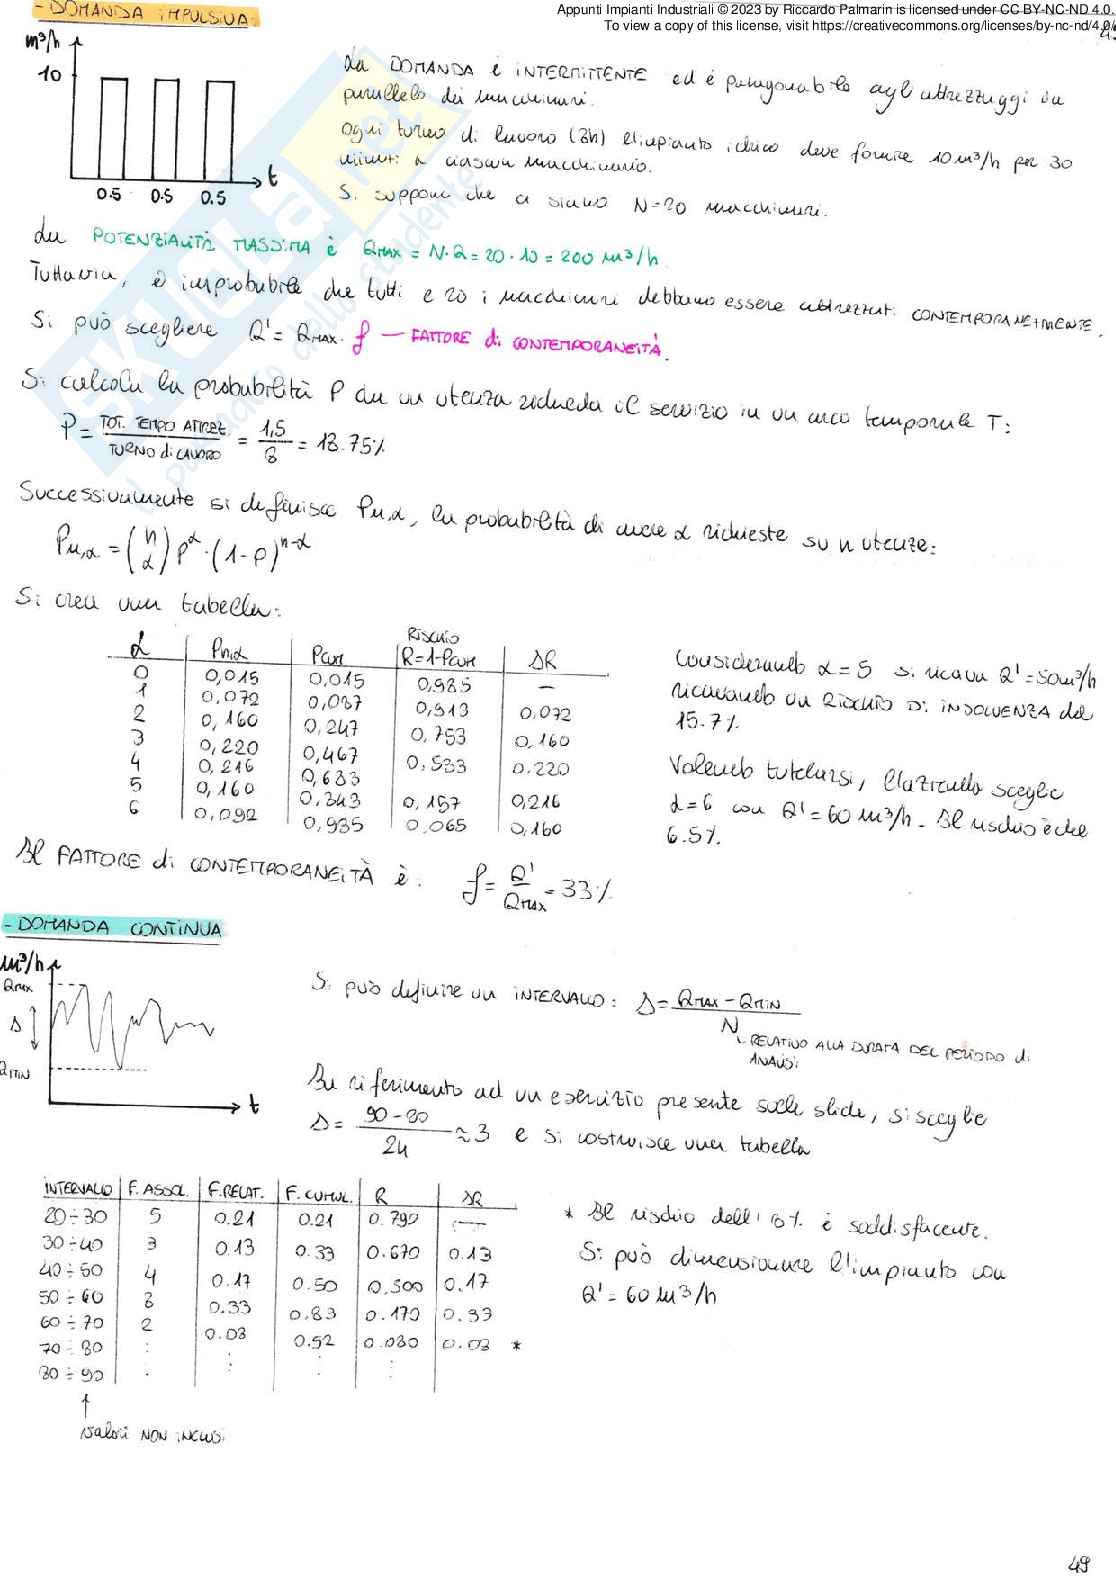 Appunti Impianti Industriali © 2023 by Riccardo Palmarin is licensed under CC BY-NC-ND 4.0.
To view a copy of this license, visit https://creativecommons.org/licenses/by-nc-nd/4.0/
- DOMANDA IMPULSIVA:
m³/h
10
0.5 0.5 0.5
t
La DOMANDA è INTERMITTENTE ed è paragonabile agli attrezzaggi in
parallelo dei macchinari.
Ogni turno di lavoro (8h) l'impianto idrico deve fornire 10 m³/h per 30
minuti a ciascun macchinario.
Si suppone che ci siano N=20 macchinari.
La POTENZIALITÀ MASSIMA è QMAX = N·Q = 20·10 = 200 m³/h
Tuttavia, è improbabile che tutti e 20 i macchinari debbano essere attrezzati CONTEMPORANEAMENTE.
Si può scegliere Q' = QMAX · f — FATTORE di CONTEMPORANEITÀ.
Si calcola la probabilità P che un utenza richieda il servizio in un arco temporale T:
P = TOT. TEMPO ATTREZ. / TURNO di LAVORO = 1,5 / 8 = 18.75%
Successivamente si definisce Pn,α, la probabilità di avere α richieste su n utenze:
Pn,α = (n α) P^α · (1-P)^n-α
Si crea una tabella:
α | Pn,α | Pcum | Rischio R=1-Pcum | ΔR
0 | 0,015 | 0,015 | 0,985 | —
1 | 0,072 | 0,087 | 0,913 | 0,072
2 | 0,160 | 0,247 | 0,753 | 0,160
3 | 0,220 | 0,467 | 0,533 | 0.220
4 | 0,216 | 0,683
5 | 0,160 | 0.843 | 0,157 | 0,216
6 | 0,092 | 0,935 | 0.065 | 0,160
Considerando α=5 si ricava Q'=50m³/h
ricavando un RISCHIO DI INSOLVENZA del
15.7%
Volendo tutelarsi, l'azienda sceglie
α=6 con Q'=60 m³/h. Il rischio è del
6.5%.
Il FATTORE di CONTEMPORANEITÀ è: f = Q' / QMAX = 33%
- DOMANDA CONTINUA
m³/h
QMAX
Δ
QMIN
t
Si può definire un INTERVALLO: Δ = QMAX - QMIN / N
RELATIVO ALLA DURATA DEL PERIODO di
ANALISI
In riferimento ad un esercizio presente sulle slide, si sceglie
Δ = 90-20 / 24 ≈ 3 e si costruisce una tabella
INTERVALLO | F. ASSOL. | F. RELAT. | F. CUMUL. | R | ΔR
20÷30 | 5 | 0.21 | 0.21 | 0.790 | —
30÷40 | 3 | 0.13 | 0.33 | 0.670 | 0.13
40÷50 | 4 | 0.17 | 0.50 | 0.500 | 0.17
50÷60 | 8 | 0.33 | 0.83 | 0.170 | 0.33
60÷70 | 2 | 0.08 | 0.92 | 0.080 | 0.08 *
70÷80 | : | : | : | :
80÷90 | :
valori NON inclusi
* Il rischio dell' 10% è soddisfacente.
Si può dimensionare l'impianto con
Q' = 60 m³/h
49